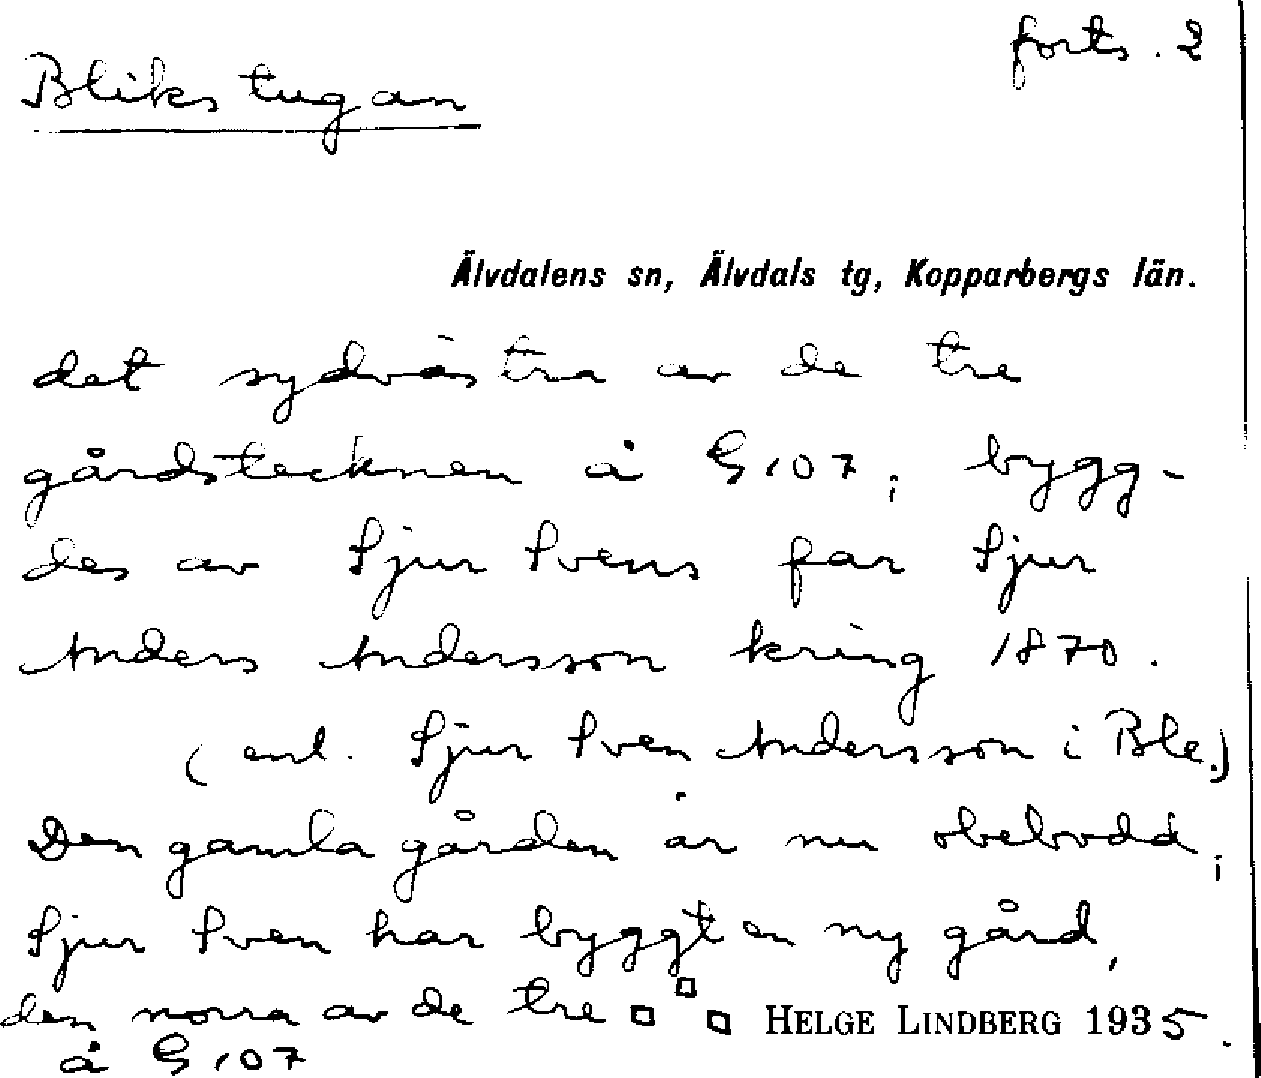 forts. 2
Blikstugan
Älvdalens sn, Älvdals tg, Kopparbergs län.
det sydvästra av de tre
gårdstecknen å G107; bygg-
des av Sjur Svens far Sjur
Anders Andersson kring 1870.
(enl. Sjur Sven Andersson i Ble.)
Den gamla gården är nu obebodd;
Sjur Sven har byggt en ny gård,
den norra av de tre □ □ □ HELGE LINDBERG 1935.
å G107